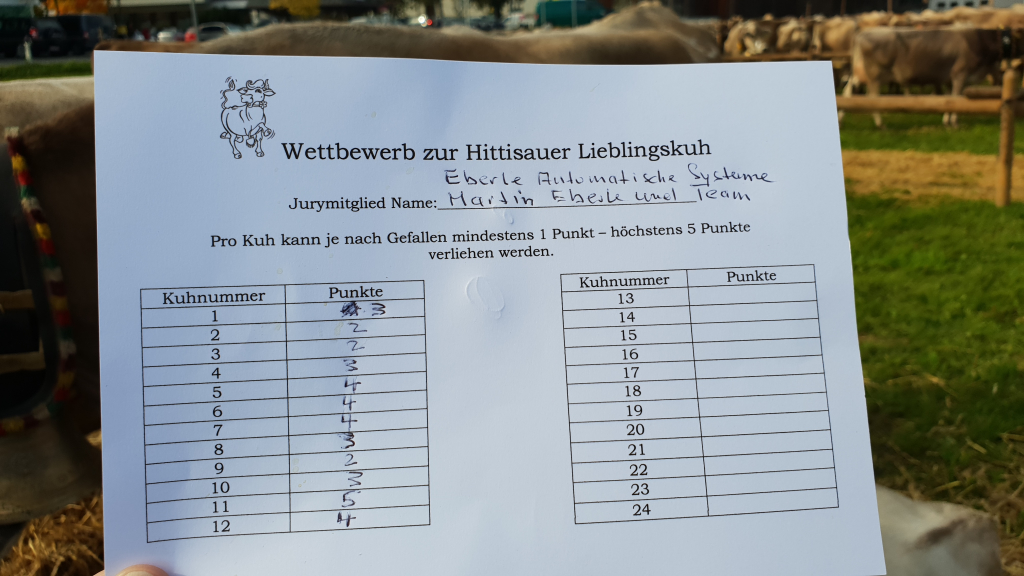 Wettbewerb zur Hittisauer Lieblingskuh
Eberle Automatische Systeme
Jurymitglied Name: Martin Eberle und Team
Pro Kuh kann je nach Gefallen mindestens 1 Punkt – höchstens 5 Punkte
verliehen werden.
Kuhnummer Punkte
1 3
2 2
3 2
4 3
5 4
6 4
7 4
8 3
9 2
10 3
11 5
12 4
Kuhnummer Punkte
13
14
15
16
17
18
19
20
21
22
23
24